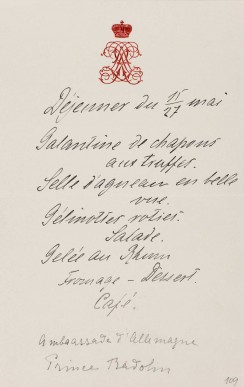 Déjeuner du 15/27 mai
Galantine de chapons
aux truffes.
Selle d'agneau en belle
vue.
Gélinottes roties.
Salade.
Gelée au Rhum
Fromage – Dessert.
Café.
Ambassade d'Allemagne
Prince Radolin
109